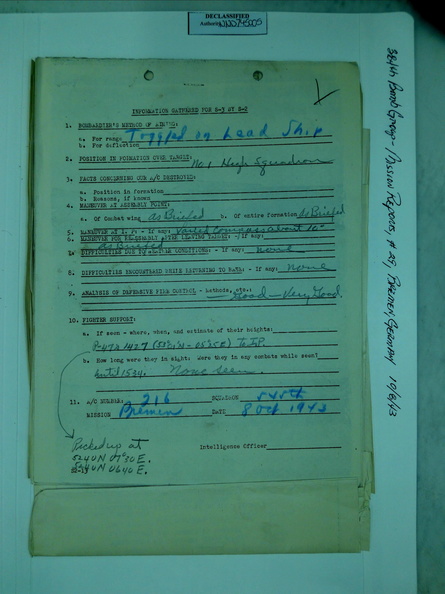 DECLASSIFIED
Authority NND 745005
384th Bomb Group - Mission Reports, # 29, Bremen, Germany 10/8/43
INFORMATION GATHERED FOR S-3 BY S-2
1. BOMBARDIER'S METHOD OF AIMING:
a. For range Toggled on Lead Ship
b. For deflection
2. POSITION IN FORMATION OVER TARGET:
No. 1 High Squadron
3. FACTS CONCERNING OUR A/C DESTROYED:
a. Position in formation
b. Reasons, if known
4. MANEUVER AT ASSEMBLY POINT:
a. Of Combat wing as Briefed b. Of entire formation as Briefed
5. MANEUVER AT I. P: - If any: Varied compass about 10°
6. MANEUVER FOR REASSEMBLY AFTER LEAVING TARGET: - If any:
as Briefed
7. DIFFICULTIES DUE TO WEATHER CONDITIONS: - If any: none
8. DIFFICULTIES ENCOUNTERED WHILE RETURNING TO BASE: - If any: none
9. ANALYSIS OF DEFENSIVE FIRE CONTROL - Methods, etc.:
Good - Very Good.
10. FIGHTER SUPPORT:
a. If seen - where, when, and estimate of their heights:
P-47s 1427 to I.P.
b. How long were they in sight? Were they in any combats while seen?
until 1534. None seen.
11. A/C NUMBER: 216 SQUADRON 545th
MISSION Bremen DATE 8 Oct 1943
Picked up at
5240N 0730E.
5240N 0640E.
Intelligence Officer